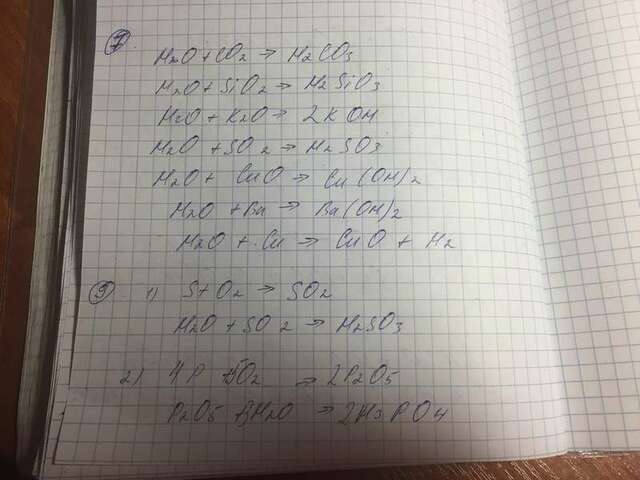 H₂O + CO₂ → H₂CO₃
H₂O + SiO₂ → H₂SiO₃
H₂O + K₂O → 2KOH
H₂O + SO₂ → H₂SO₃
H₂O + CuO → Cu(OH)₂
H₂O + → (OH)₂
H₂O + Cu → CuO + H₂
1) S + O₂ → SO₂
H₂O + SO₂ → H₂SO₃
2) 4P 5O₂ → 2P₂O₅
P₂O₅ + 3H₂O → 2H₃PO₄